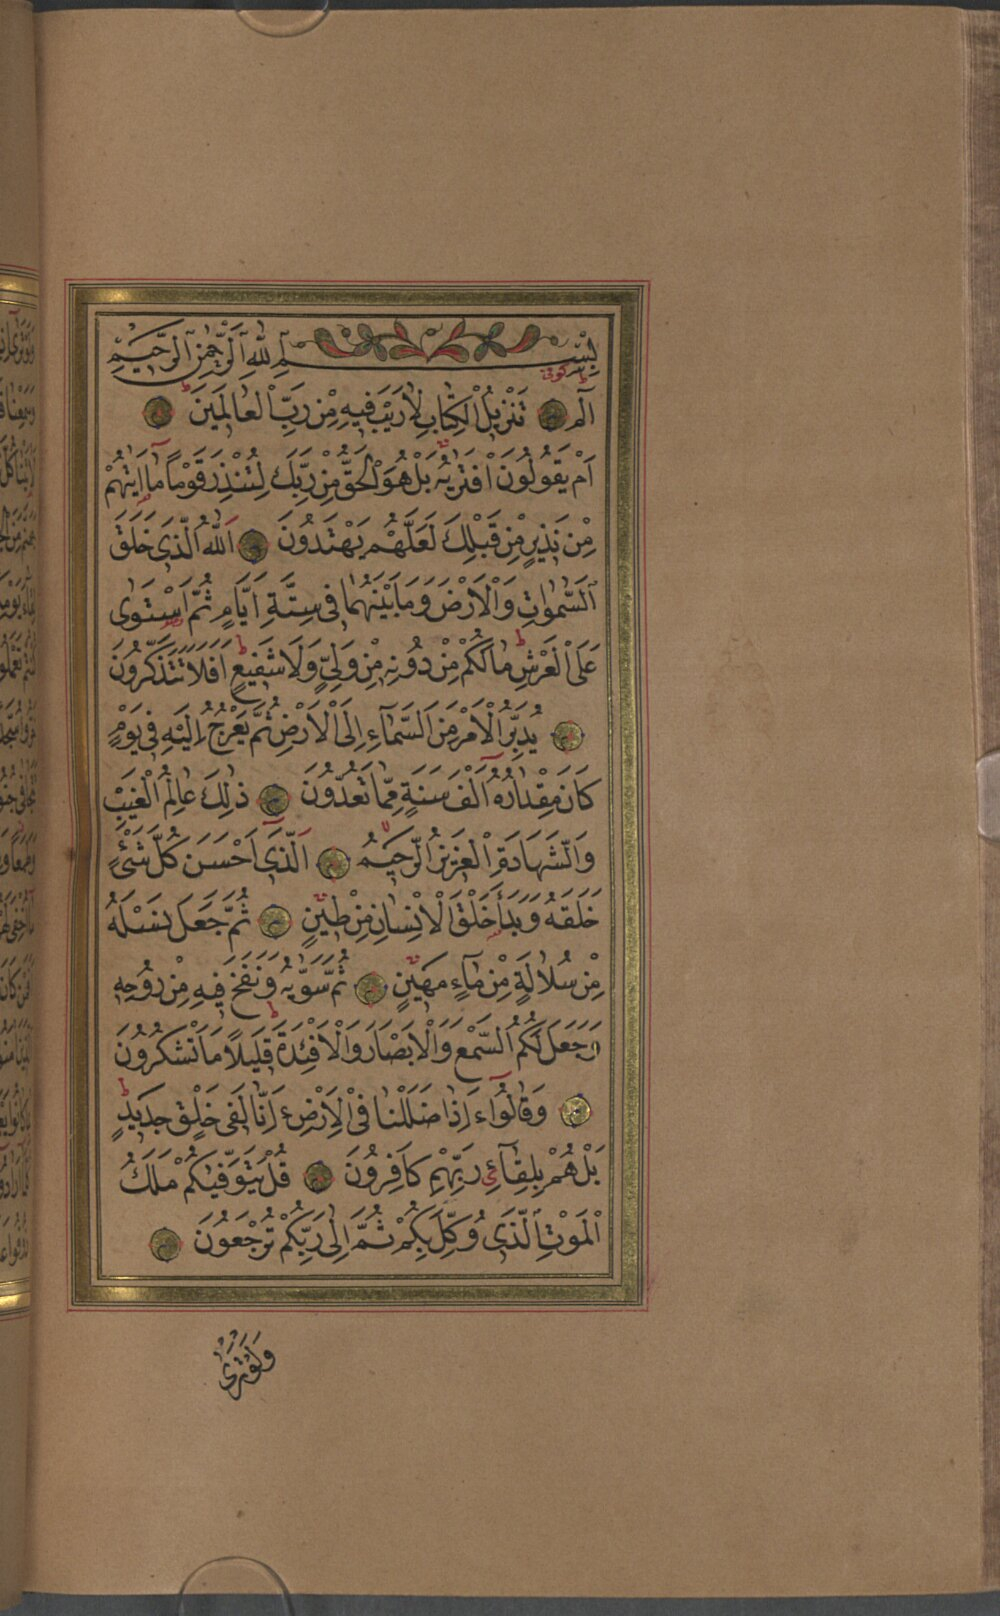 بِسْمِ اللّٰهِ الرَّحْمٰنِ الرَّحِيمِ
كوفى
الٓمٓ تَنْزِيلُ الْكِتَابِ لَا رَيْبَ فِيهِ مِنْ رَبِّ الْعَالَمِينَ
اَمْ يَقُولُونَ افْتَرٰيهُ بَلْ هُوَ الْحَقُّ مِنْ رَبِّكَ لِتُنْذِرَ قَوْمًا مَٓا اَتٰيهُمْ
مِنْ نَذِيرٍ مِنْ قَبْلِكَ لَعَلَّهُمْ يَهْتَدُونَ اَللّٰهُ الَّذِي خَلَقَ
السَّمٰوَاتِ وَالْاَرْضَ وَمَا بَيْنَهُمَا فِي سِتَّةِ اَيَّامٍ ثُمَّ اسْتَوٰى
عَلَى الْعَرْشِ مَا لَكُمْ مِنْ دُونِهِ مِنْ وَلِيٍّ وَلَا شَفِيعٍ اَفَلَا تَتَذَكَّرُونَ
يُدَبِّرُ الْاَمْرَ مِنَ السَّمَٓاءِ اِلَى الْاَرْضِ ثُمَّ يَعْرُجُ اِلَيْهِ فِي يَوْمٍ
كَانَ مِقْدَارُهُٓ اَلْفَ سَنَةٍ مِمَّا تَعُدُّونَ ذٰلِكَ عَالِمُ الْغَيْبِ
وَالشَّهَادَةِ الْعَزِيزُ الرَّحِيمُ اَلَّذِٓي اَحْسَنَ كُلَّ شَيْءٍ
خَلَقَهُ وَبَدَاَ خَلْقَ الْاِنْسَانِ مِنْ طِينٍ ثُمَّ جَعَلَ نَسْلَهُ
مِنْ سُلَالَةٍ مِنْ مَٓاءٍ مَهِينٍ ثُمَّ سَوّٰيهُ وَنَفَخَ فِيهِ مِنْ رُوحِهِ
وَجَعَلَ لَكُمُ السَّمْعَ وَالْاَبْصَارَ وَالْاَفْئِدَةَ قَلِيلًا مَا تَشْكُرُونَ
وَقَالُٓوا ءَاِذَا ضَلَلْنَا فِي الْاَرْضِ ءَاِنَّا لَفِي خَلْقٍ جَدِيدٍ
بَلْ هُمْ بِلِقَٓائِ رَبِّهِمْ كَافِرُونَ قُلْ يَتَوَفّٰيكُمْ مَلَكُ
الْمَوْتِ الَّذِي وُكِّلَ بِكُمْ ثُمَّ اِلٰى رَبِّكُمْ تُرْجَعُونَ
وَلَوْ تَرٰٓى